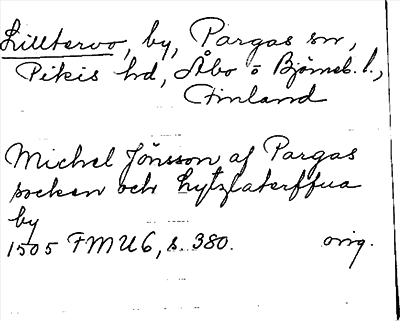 Lilltervo, by, Pargas sn,
Pikis hd, Åbo o Björneb. l.,
Finland
Michel Jönsson af Pargas
socken och Lytzlaterffua
by
1505 FMU 6, s. 380. orig.